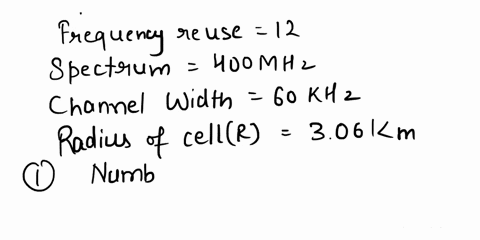 Frequency reuse = 12
Spectrum = 400 MHz
Channel Width = 60 KHz
Radius of cell(R) = 3.06 Km
① Numb